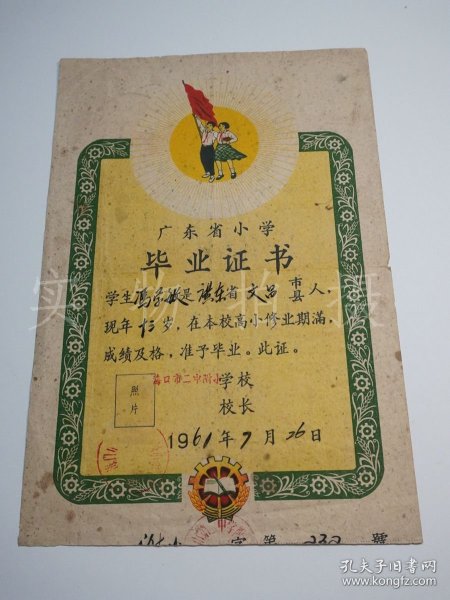 广东省小学
毕业证书
学生冯 敏是广东省文昌市县人,
现年十三岁,在本校高小修业期滿,
成绩及格,准予毕业。此证。
海口市二中附小学校
校长
照片
1961年7月26日
字第 号
实物拍摄
孔夫子旧书网
www.kongfz.com